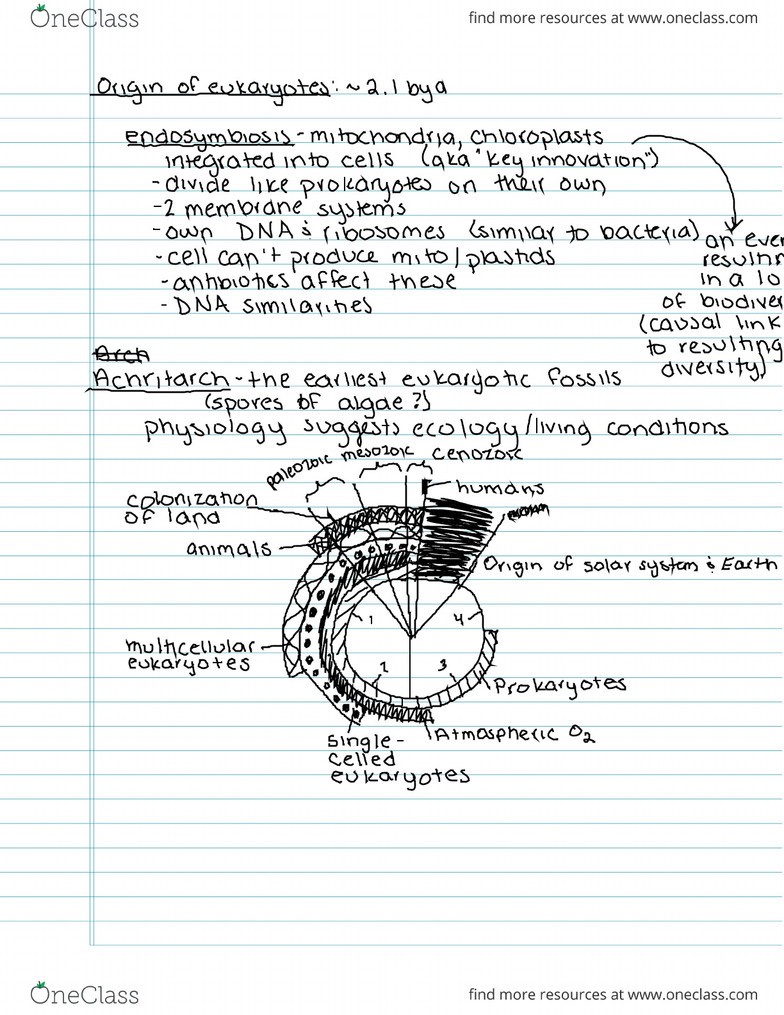 OneClass
find more resources at www.oneclass.com
Origin of eukaryotes: ~2.1 bya
endosymbiosis - mitochondria, chloroplasts
integrated into cells (aka "key innovation")
- divide like prokaryotes on their own
- 2 membrane systems
- own DNA & ribosomes (similar to bacteria)
- cell can't produce mito/plastids
- antibiotics affect these
- DNA similarities
an even
resultin
in a lo
of biodiver
(causal link
to resulting
diversity)
Arch
Achritarch - the earliest eukaryotic fossils
(spores of algae?)
physiology suggests ecology/living conditions
paleozoic mesozoic cenozoic
humans
colonization
of land
animals
Origin of solar system & Earth
1
4
multicellular
eukaryotes
2
3
Prokaryotes
Atmospheric O₂
Single-
celled
eukaryotes
OneClass
find more resources at www.oneclass.com